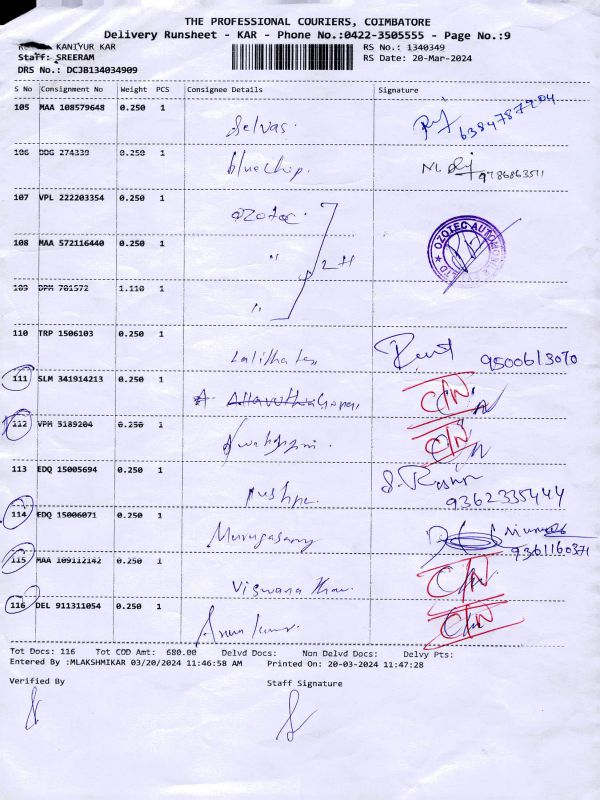 THE PROFESSIONAL COURIERS, COIMBATORE
Delivery Runsheet - KAR - Phone No.:0422-3505555 - Page No.:9
KANIYUR KAR
RS No.: 1340349
Staff: SREERAM
RS Date: 20-Mar-2024
DRS No.: DCJB134034909
S No Consignment No Weight PCS Consignee Details Signature
105 MAA 108579648 0.250 1
Selvas.
6384787904
106 DDG 274339 0.250 1
bluechip.
9786863511
107 VPL 222203354 0.250 1
OZOTEC.
108 MAA 572116440 0.250 1
"
OZOTEC AUTOMOBILE
109 DPM 701572 1.110 1
"
110 TRP 1506103 0.250 1
Lalitha Tex
9500613070
111 SLM 341914213 0.250 1
C/N
112 VPM 5189204 0.250 1
C/N
113 EDQ 15005694 0.250 1
Pushpa.
9362335444
114 EDQ 15006071 0.250 1
Murugasamy
9361160371
115 MAA 109112142 0.250 1
Viswanathan.
C/N
116 DEL 911311054 0.250 1
Arun kumar.
C/N
Tot Docs: 116 Tot COD Amt: 680.00 Delvd Docs: Non Delvd Docs: Delvy Pts:
Entered By :MLAKSHMIKAR 03/20/2024 11:46:58 AM Printed On: 20-03-2024 11:47:28
Verified By
Staff Signature